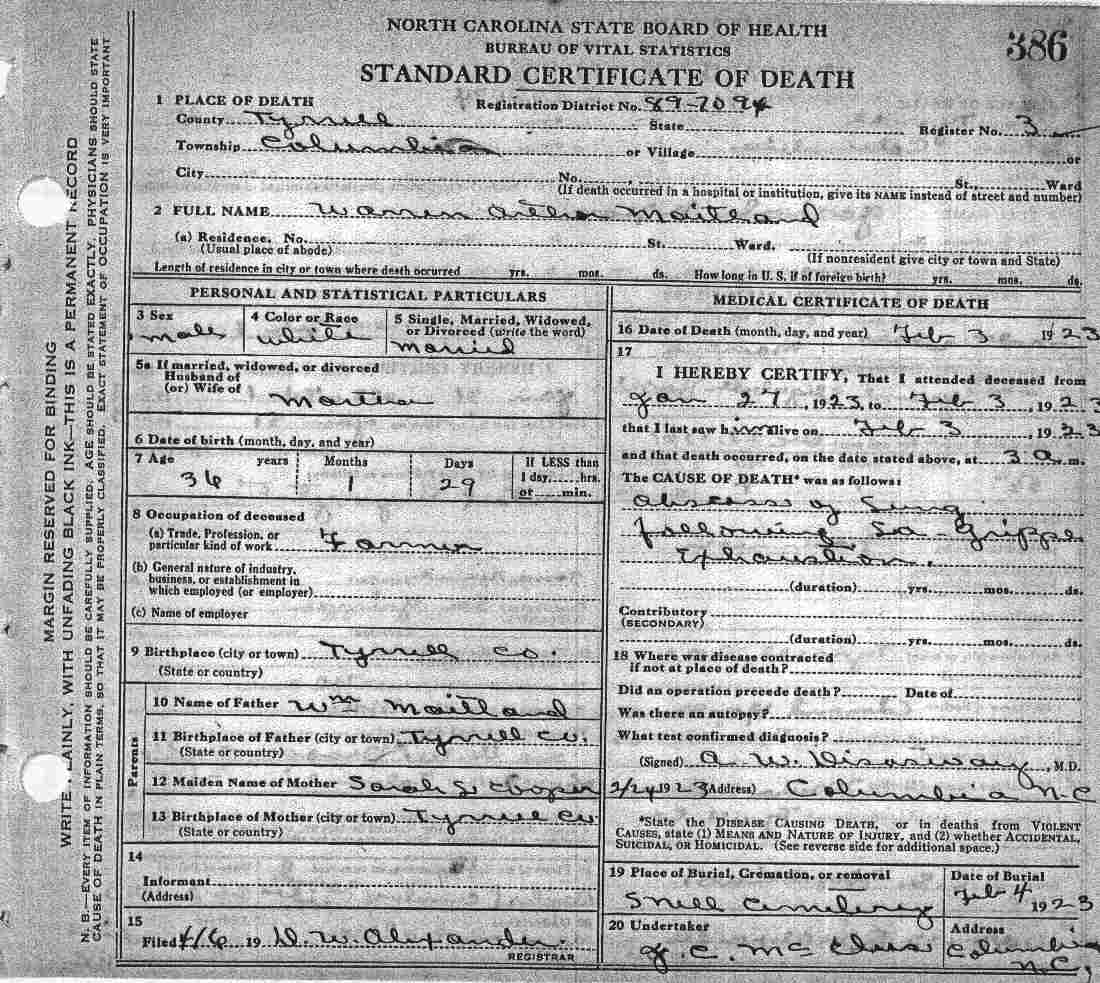 NORTH CAROLINA STATE BOARD OF HEALTH
BUREAU OF VITAL STATISTICS
386
STANDARD CERTIFICATE OF DEATH
1 PLACE OF DEATH Registration District No. 89-7094
County Tyrrell State Register No. 3
Township Columbia or Village or
City No. , St., Ward
(If death occurred in a hospital or institution, give its NAME instead of street and number)
2 FULL NAME Warren Arthur Maitland
(a) Residence. No. St. Ward.
(Usual place of abode) (If nonresident give city or town and State)
Length of residence in city or town where death occurred yrs. mos. ds. How long in U. S. if of foreign birth? yrs. mos. ds.
PERSONAL AND STATISTICAL PARTICULARS
3 Sex
male
4 Color or Race
White
5 Single, Married, Widowed,
or Divorced (write the word)
Married
5a If married, widowed, or divorced
Husband of
(or) Wife of
Martha
6 Date of birth (month, day, and year)
7 Age years Months Days If LESS than
36 1 29 1 day, hrs.
or min.
8 Occupation of deceased
(a) Trade, Profession, or
particular kind of work Farmer
(b) General nature of industry,
business, or establishment in
which employed (or employer)
(c) Name of employer
9 Birthplace (city or town) Tyrrell Co.
(State or country)
Parents
10 Name of Father Wm Maitland
11 Birthplace of Father (city or town) Tyrrell Co.
(State or country)
12 Maiden Name of Mother Sarah Cooper
13 Birthplace of Mother (city or town) Tyrrell Co
(State or country)
14
Informant
(Address)
15
Filed 4/6 19 D. W. Alexander.
REGISTRAR
MEDICAL CERTIFICATE OF DEATH
16 Date of Death (month, day, and year) Feb 3 1923
17
I HEREBY CERTIFY, That I attended deceased from
Jan 27, 1923, to Feb 3, 1923
that I last saw him alive on Feb 3, 1923
and that death occurred, on the date stated above, at 3 a. m.
The CAUSE OF DEATH* was as follows:
Abscess of Lung
following La-Grippe
Exhaustion.
(duration) yrs. mos. ds.
Contributory
(SECONDARY)
(duration) yrs. mos. ds.
18 Where was disease contracted
if not at place of death?
Did an operation precede death? Date of
Was there an autopsy?
What test confirmed diagnosis?
(Signed) A. W. Disosway, M.D.
2/24 1923 Address) Columbia N.C
*State the DISEASE CAUSING DEATH, or in deaths from VIOLENT
CAUSES, state (1) MEANS AND NATURE OF INJURY, and (2) whether ACCIDENTAL,
SUICIDAL, OR HOMICIDAL. (See reverse side for additional space.)
19 Place of Burial, Cremation, or removal
Snell Cemetery
Date of Burial
Feb 4 1923
20 Undertaker
J. C. Mc
Address
Columbia
N.C.
MARGIN RESERVED FOR BINDING
WRITE PLAINLY, WITH UNFADING BLACK INK—THIS IS A PERMANENT RECORD
N. B.—EVERY ITEM OF INFORMATION SHOULD BE CAREFULLY SUPPLIED. AGE SHOULD BE STATED EXACTLY. PHYSICIANS SHOULD STATE
CAUSE OF DEATH IN PLAIN TERMS, SO THAT IT MAY BE PROPERLY CLASSIFIED. EXACT STATEMENT OF OCCUPATION IS VERY IMPORTANT